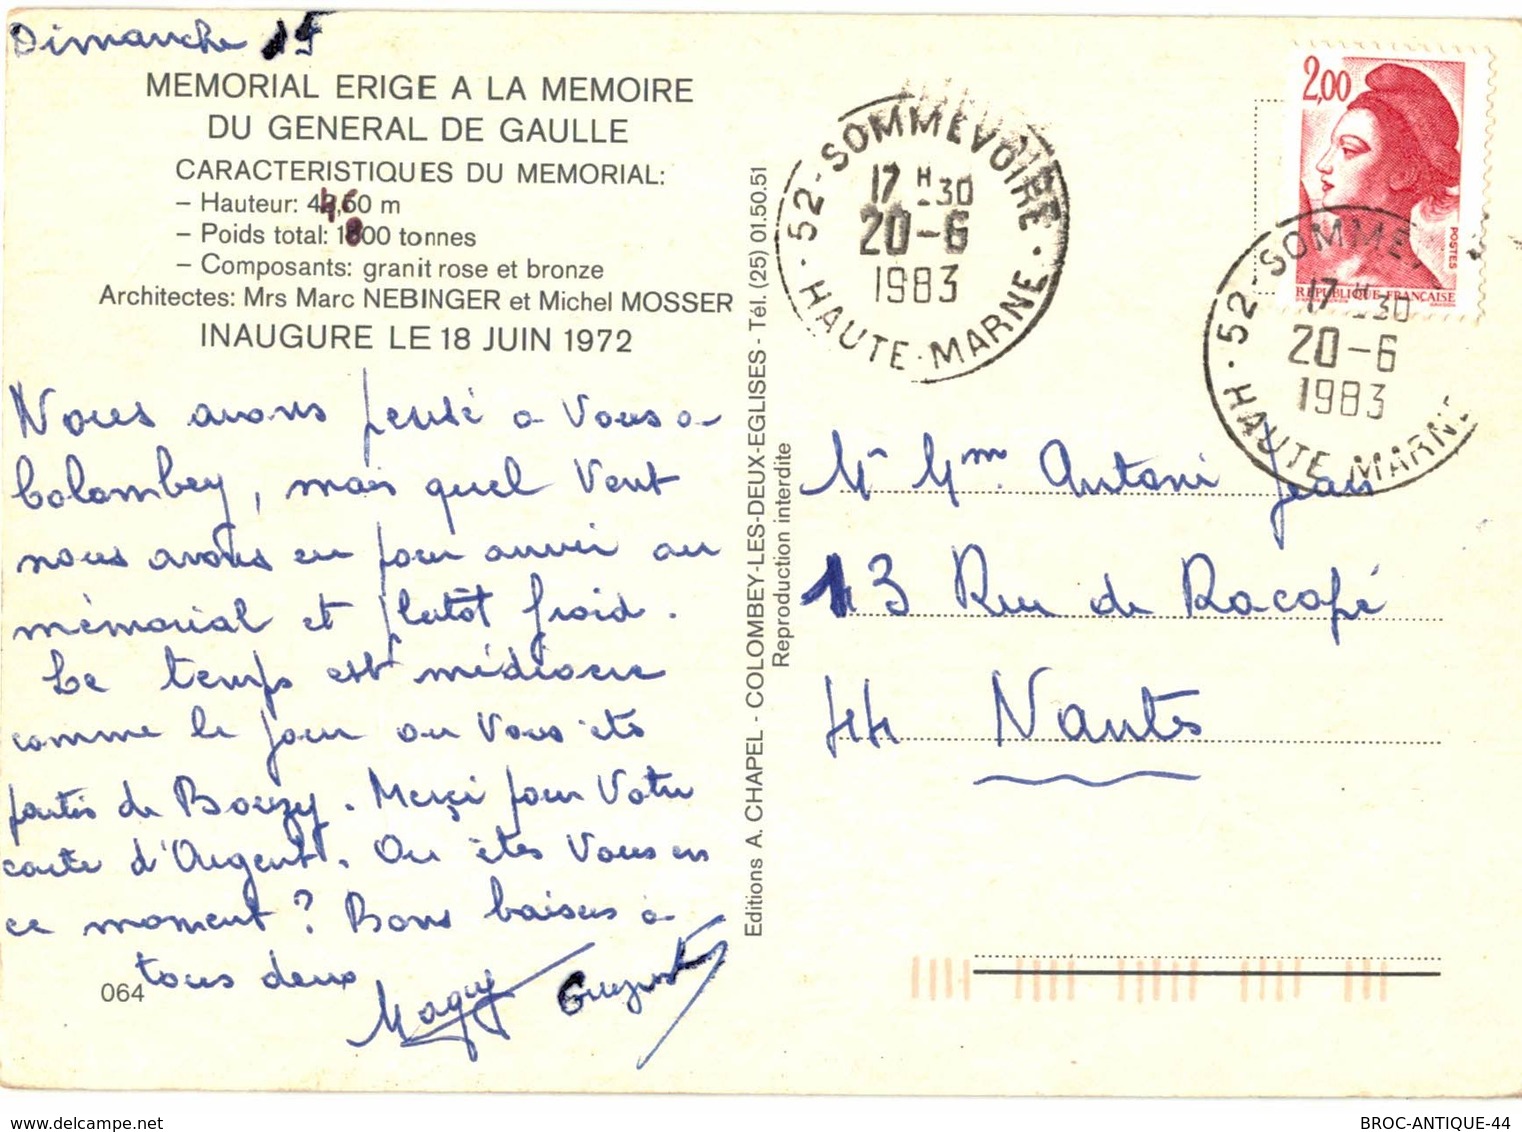 Dimanche
MEMORIAL ERIGE A LA MEMOIRE
DU GENERAL DE GAULLE
CARACTERISTIQUES DU MEMORIAL:
– Hauteur: 4,60 m
– Poids total: 1800 tonnes
– Composants: granit rose et bronze
Architectes: Mrs Marc NEBINGER et Michel MOSSER
INAUGURE LE 18 JUIN 1972
Nous avons pensé a Vous a
Colombey, mais quel Vent
nous avons eu pour arriver au
mémorial et plutôt froid.
Le temps est médiocre
comme le jour ou Vous êts
partis de Bouzy. Merçi pour Votre
carte d'Argent. Ou êtes Vous en
ce moment? Bons baisers à
tous deux
Maguy
064
Editions A. CHAPEL - COLOMBEY-LES-DEUX-EGLISES - Tél. (25) 01.50.51
Reproduction interdite
52 - SOMMEVOIRE
17 H 30
20-6
1983
HAUTE-MARNE
2,00
POSTES
REPUBLIQUE FRANÇAISE
52 - SOMME
17 H 30
20-6
1983
HAUTE MARNE
Mr Mme Antoni Jean
13 Rue de Racapé
44 Nantes
www.delcampe.net
BROC-ANTIQUE-44